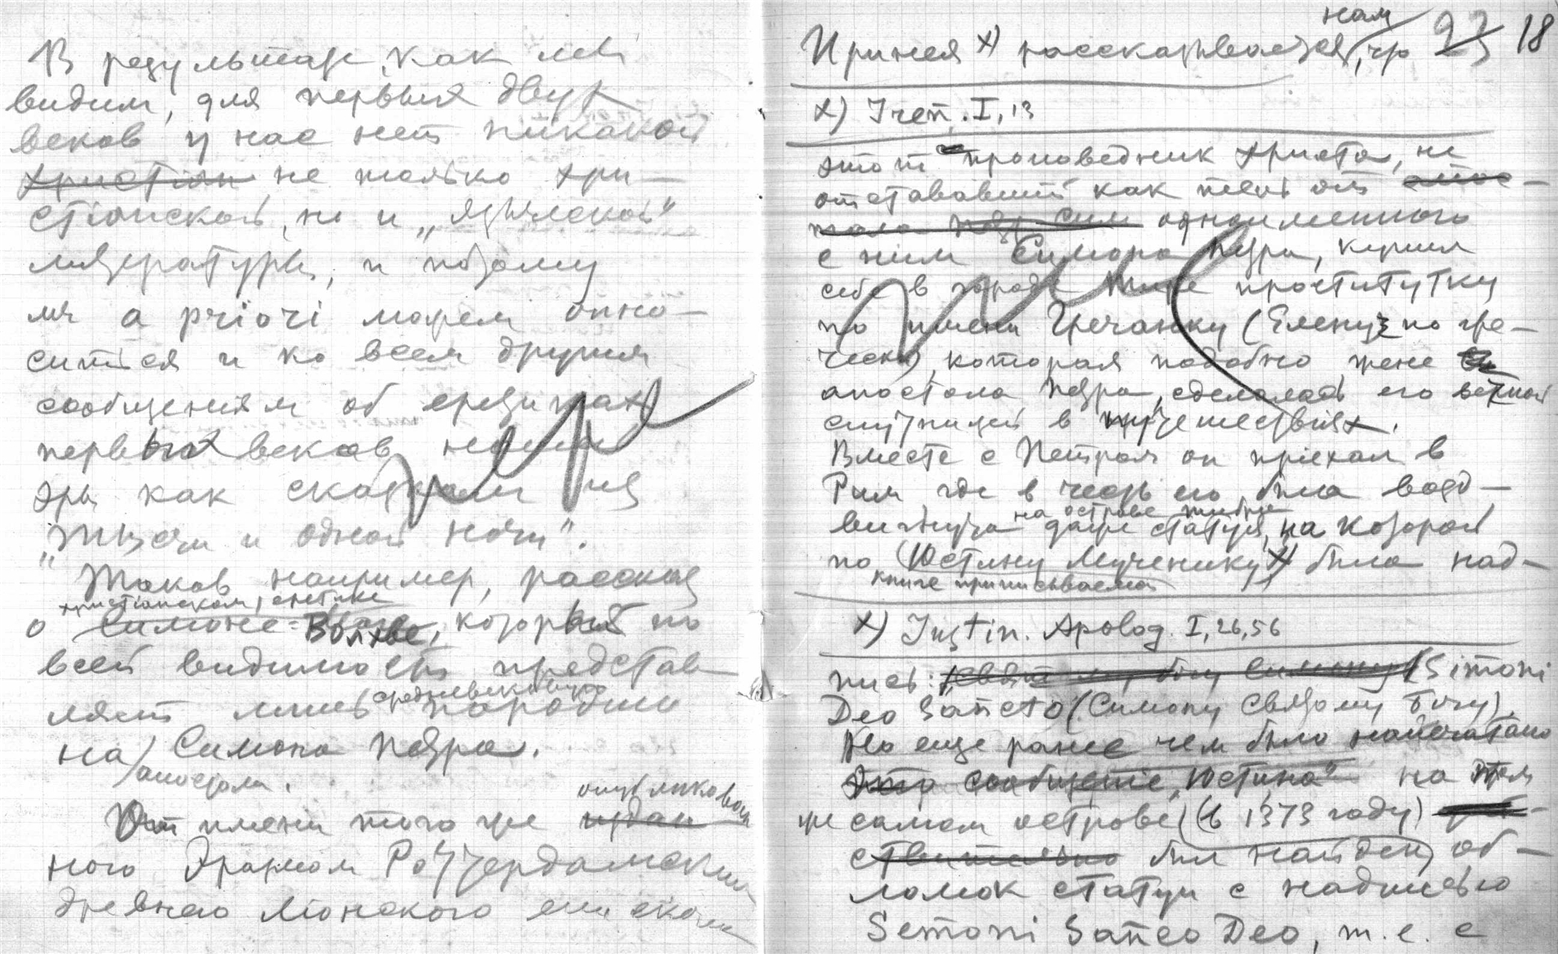 В результате, как мы
видим, для первых двух
веков у нас нет никакой
христіан не только хри-
стіанской, но и „языческой"
литературы, и поэтому
мы a priori можем отно-
ситься и ко всем другим
сообщениям об еретиках
первых веков нашей
эры как сказкам из
„Тысячи и одной ночи".
Таков, например, рассказ
христіанском еретике
о Симоне-Волхве, который по
всей видимости представ-
средневековую
ляет лишь пародию
на Симона Петра.
апостола.
опубликован
От имени того же издан-
ного Эразмом Роттердамским
древнего Лионского епископа
нам
Иринея х) рассказывается, что 23 18
х) Iren. I, 13
этот проповедник Христа, не
отстававший как тень от апос-
тола одноименного
с ним Симона Петра, купил
себе в городе Тире проститутку
по имени Гречанку (Елену по гре-
чески), которая подобно жене
апостола Петра, сделалась его вечной
спутницей в путешествіях.
Вместе с Петром он пріехал в
Рим где в честь его была возд-
на острове Тибра
вигнута даже статуя, на которой
по Юстину Мученику х) была над-
книге приписываемой
х) Justin. Apolog. I, 26, 56
пись: (Simoni
Deo Sancto (Симону Святому Богу).
Но еще ранее чем было напечатано
это сообщеніе „Юстина" на том
же самом острове (в 1373 году)
ствительно был найден об-
ломок статуи с надписью
Semoni Sanco Deo, т.е. с